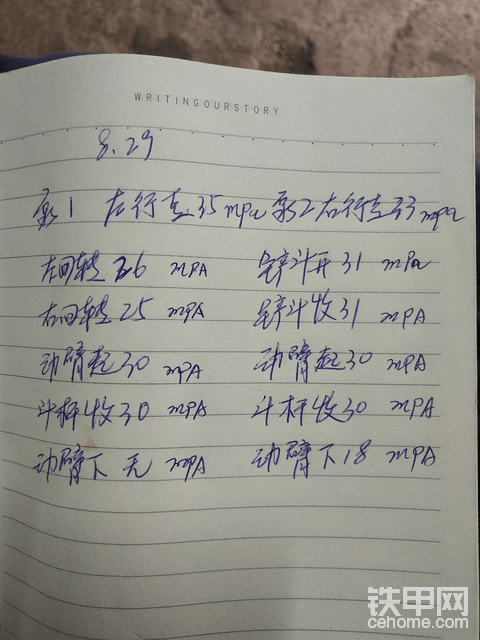 WRITINGOURSTORY
8.29
泵1 左行走35mpa 泵2右行走33mpa
左回转26 mPA 铲斗开31 mPa
右回转25 mPA 铲斗收31 mPA
动臂起30 mPA 动臂起30 mPA
斗杆收30 mPA 斗杆收30 mPA
动臂下 无 mPA 动臂下18 mPA
铁甲网
cehome.com